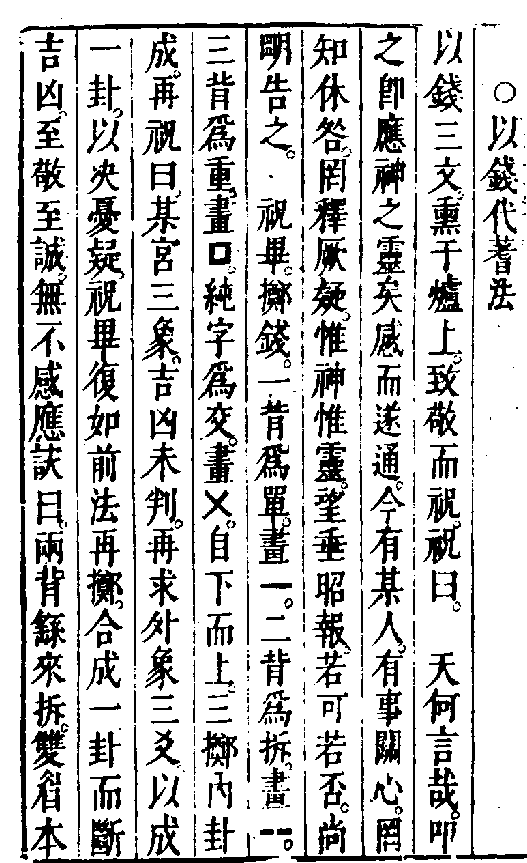 ○以錢代蓍法
以錢三文。熏于爐上。致敬而祝。祝曰。 天何言哉。叩
之卽應。神之靈矣。感而遂通。今有某人。有事關心。罔
知休咎。罔釋厥疑。惟神惟靈。望垂昭報。若可若否。尚
明告之。 祝畢。擲錢。一背爲單。畫一。二背爲拆。畫--。
三背爲重。畫口。純字爲交。畫×。自下而上。三擲內卦
成。再祝曰。某宮三象。吉凶未判。再求外象三爻。以成
一卦。以决憂疑。祝畢復如前法再擲。合成一卦而斷
吉凶。至敬至誠。無不感應。訣曰。兩背繇來拆。雙眉本